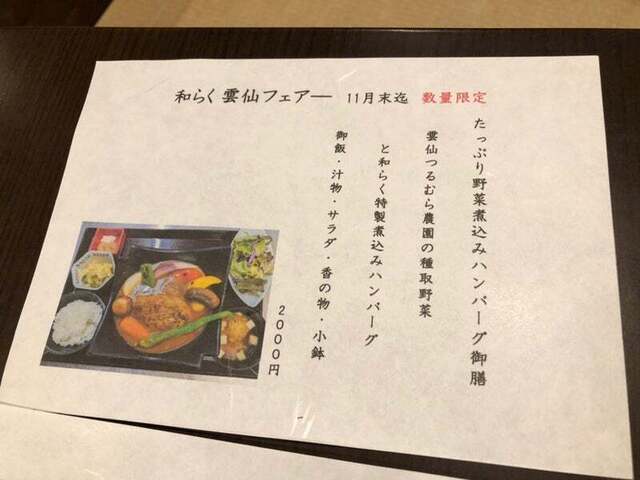 和らく 雲仙フェアー 11月末迄 数量限定
たっぷり野菜煮込みハンバーグ御膳
雲仙つるむら農園の種取野菜
と和らく特製煮込みハンバーグ
御飯・汁物・サラダ・香の物・小鉢
2000円